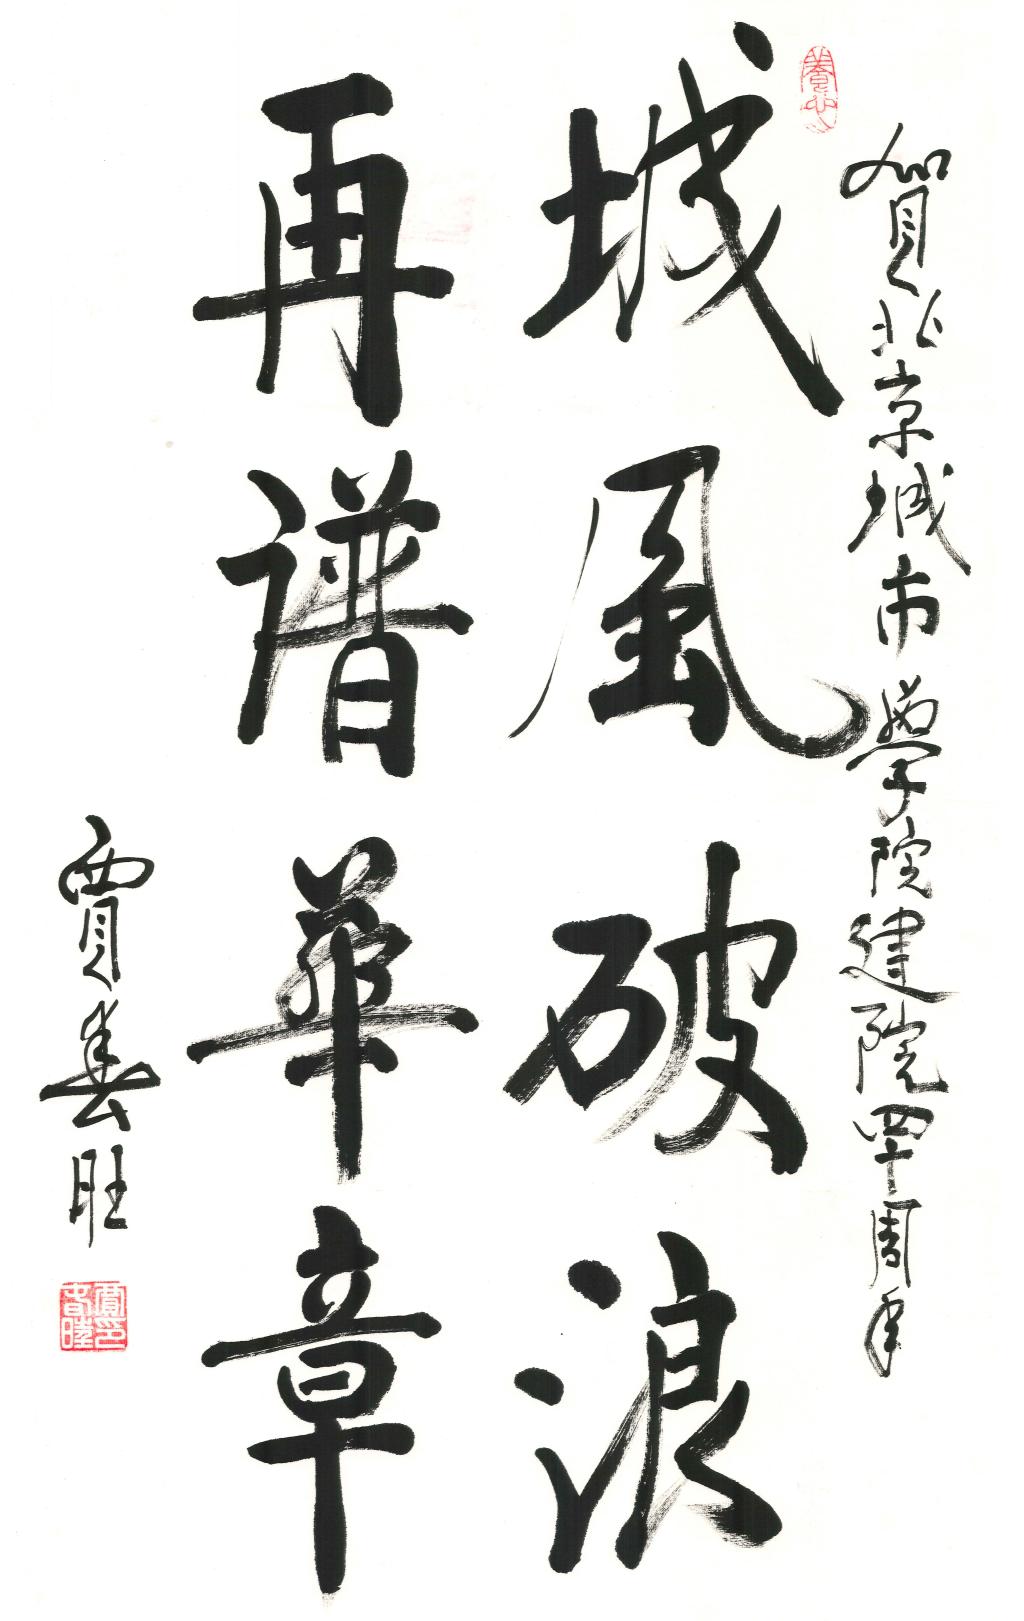 賀北京城市學院建院四十周年
城風破浪
再譜華章
賈春旺